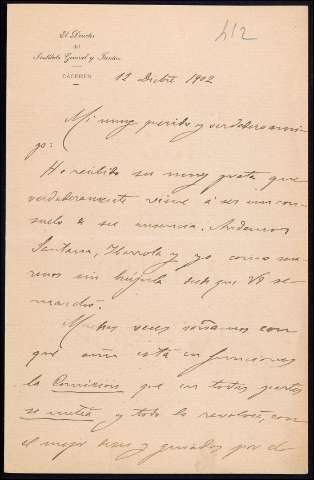 412
El Director
del
Instituto General y Técnico
CÁCERES
12 Dicbre 1902
Mi muy querido y verdadero ami-
go:
He recibido su muy grata que
verdaderamente viene á ser un con-
suelo á su ausencia. Andamos
Santana, Ibarrola y yo como ma-
rinos sin brújula desde que Vd se
marchó.
Muchas veces soñamos con
que aún está en funciones
la Comisión que en todas partes
se metía y todo lo revolvía, con
el mejor deseo y guiados por